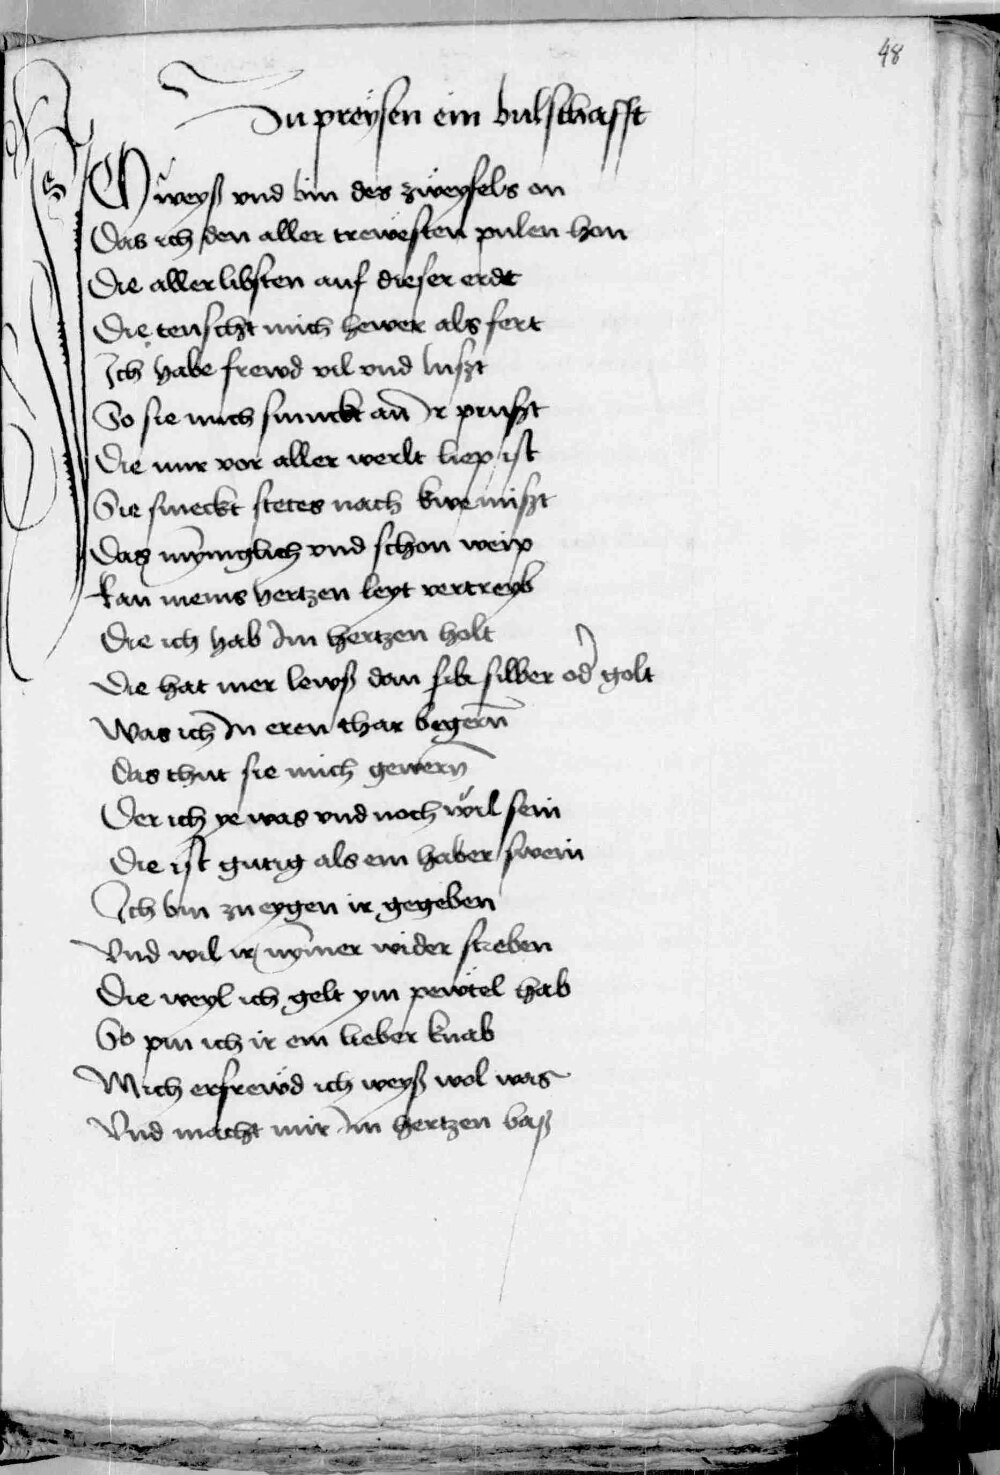 48
Zu preÿsen ein bulschafft
Ich weyß vnd bin des zweyfels on
Das ich den aller trewesten pulen hon
Die aller libsten auf dieser erde
Die teuscht mich hewer als fert
Ich habe frewd vil vnd luszt
So sie mich smuckt an Ir pruszt
Die mir vor aller werlt liep ist
Sie smeckt stetes nach kwe miszt
Das mÿniglich vnd schon weip
kan meins hertzen leyt vertreyb
Die ich hab Im hertzen holt
Die hat mer lewß dan silber od golt
Was ich In eren thar begern
das thut sie mich gewern
Der ich ye was vnd noch wil sein
Die ist gutig als ein haber swein
Ich bin zu eygen ir gegeben
Vnd wil ir nÿmer wider streben
Die weyl ich gelt ym pewtel hab
So pin ich ir ein lieber knab
Mich erfrewd ich weyß wol was
Vnd macht mir Im hertzen baß